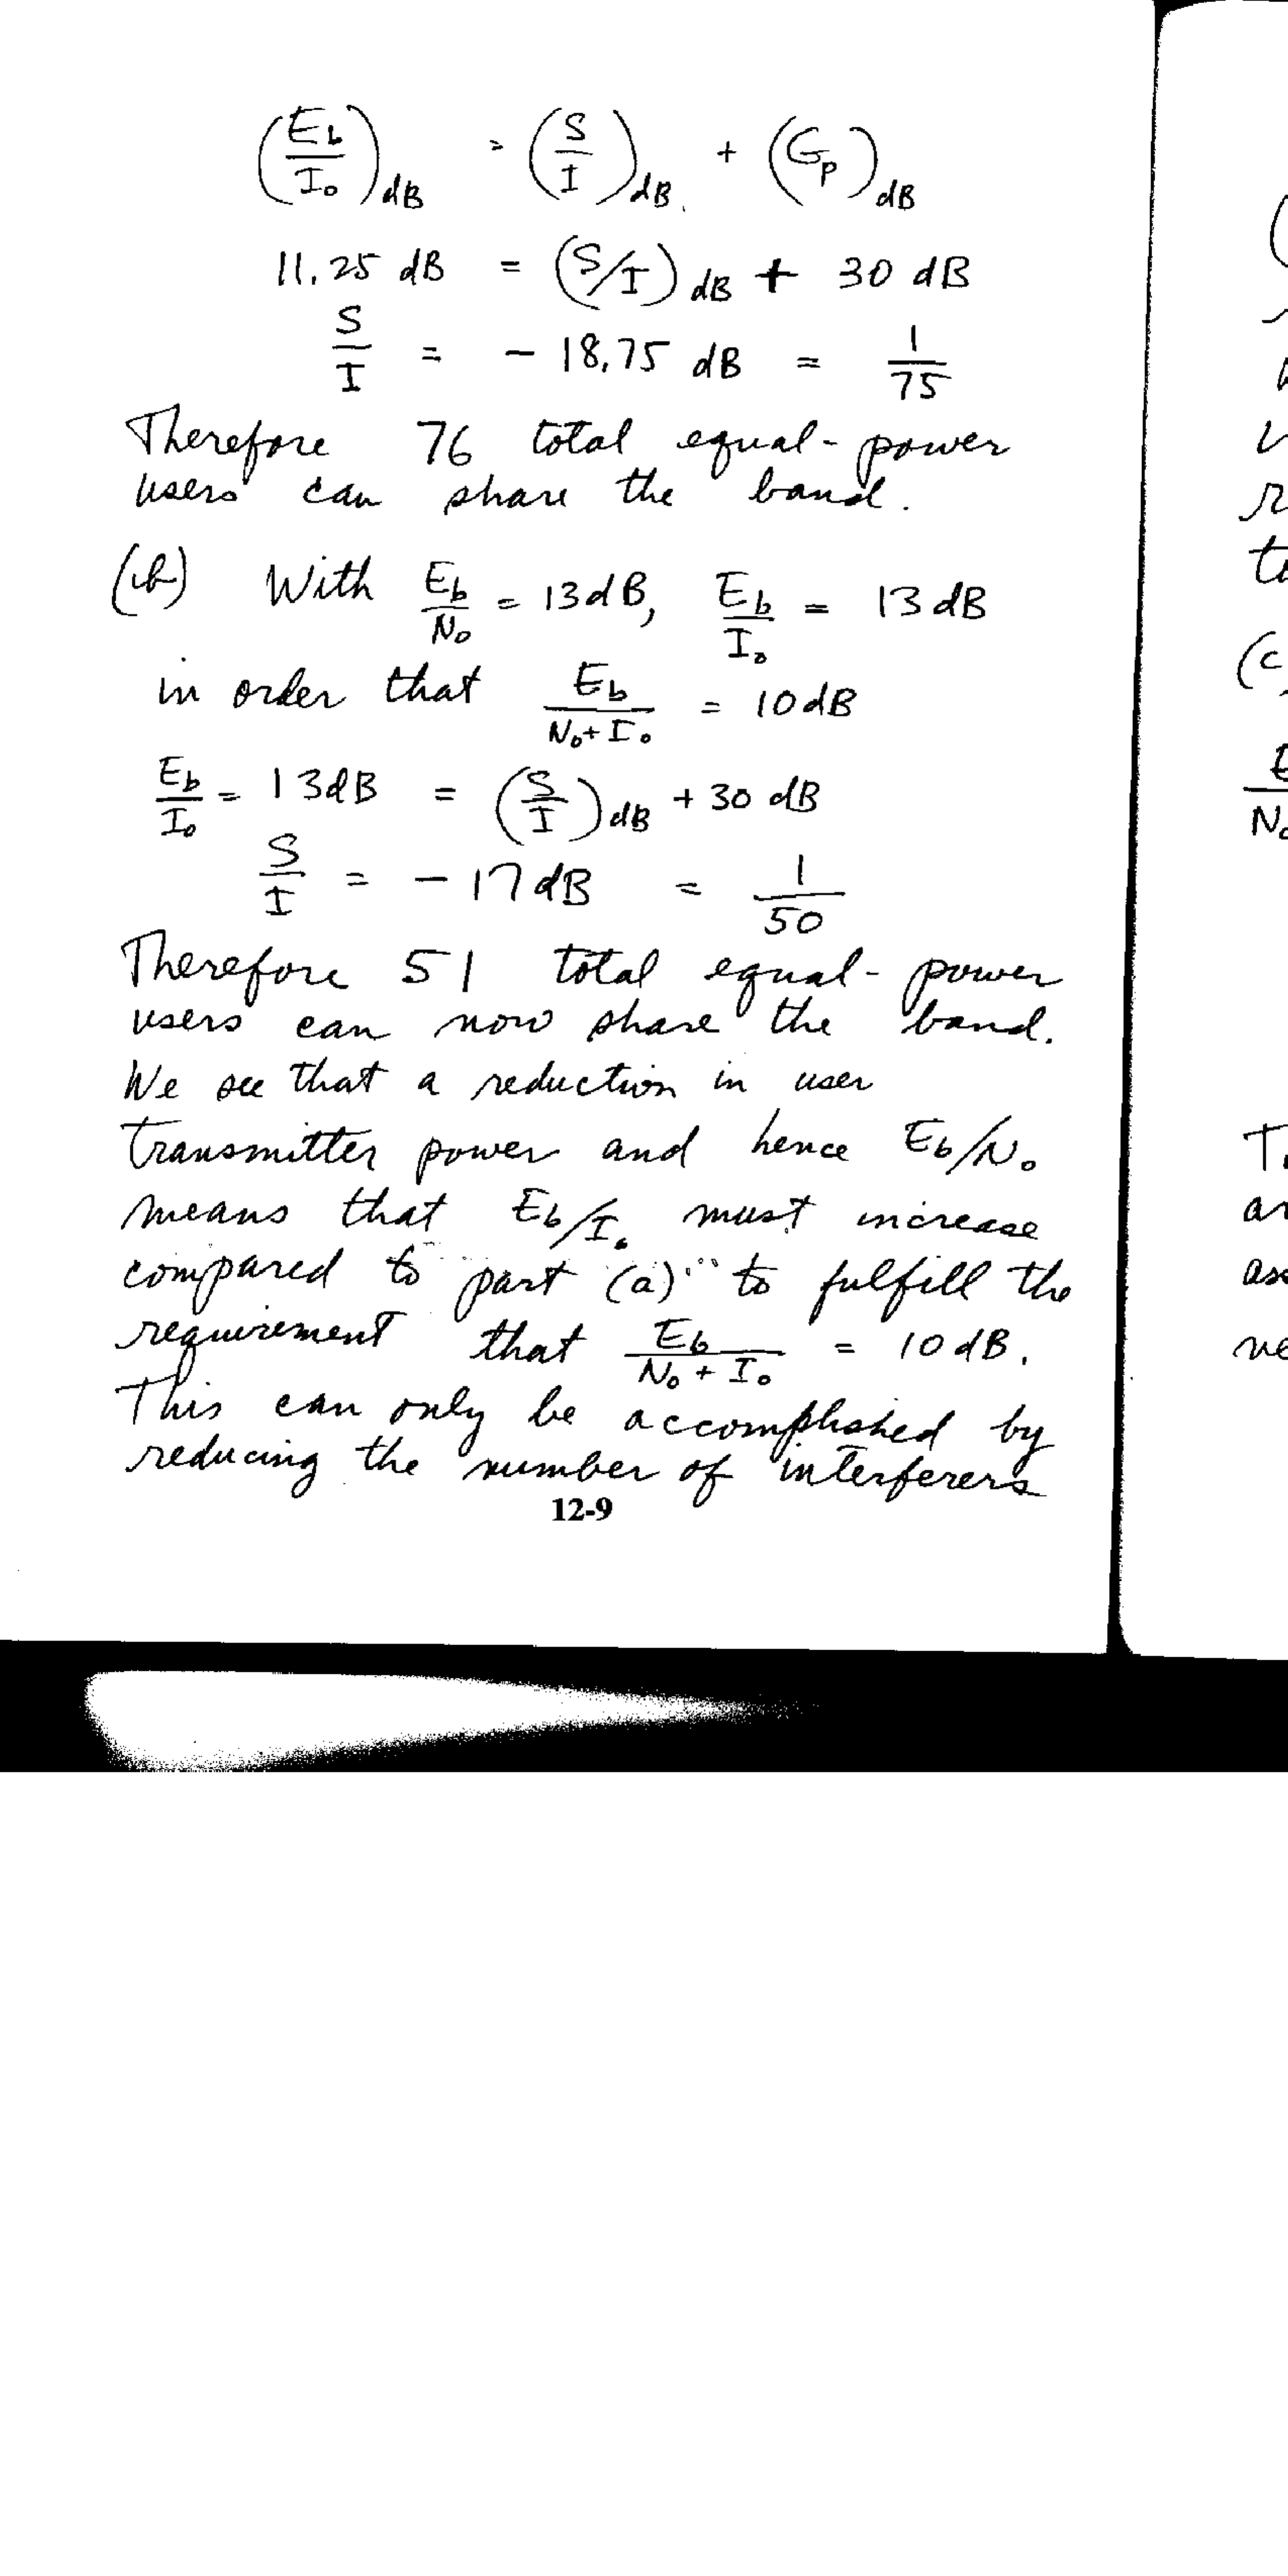 (Eb/I₀)dB = (S/I)dB + (Gp)dB
11.25 dB = (S/I)dB + 30 dB
S/I = - 18.75 dB = 1/75
Therefore 76 total equal-power
users can share the band.
(b) With Eb/N₀ = 13dB, Eb/I₀ = 13 dB
in order that Eb/(N₀+I₀) = 10 dB
Eb/I₀ = 13dB = (S/I)dB + 30 dB
S/I = - 17 dB = 1/50
Therefore 51 total equal-power
users can now share the band.
We see that a reduction in user
transmitter power and hence Eb/N₀
means that Eb/I₀ must increase
compared to part (a) to fulfill the
requirement that Eb/(N₀ + I₀) = 10 dB.
This can only be accomplished by
reducing the number of interferers
12-9